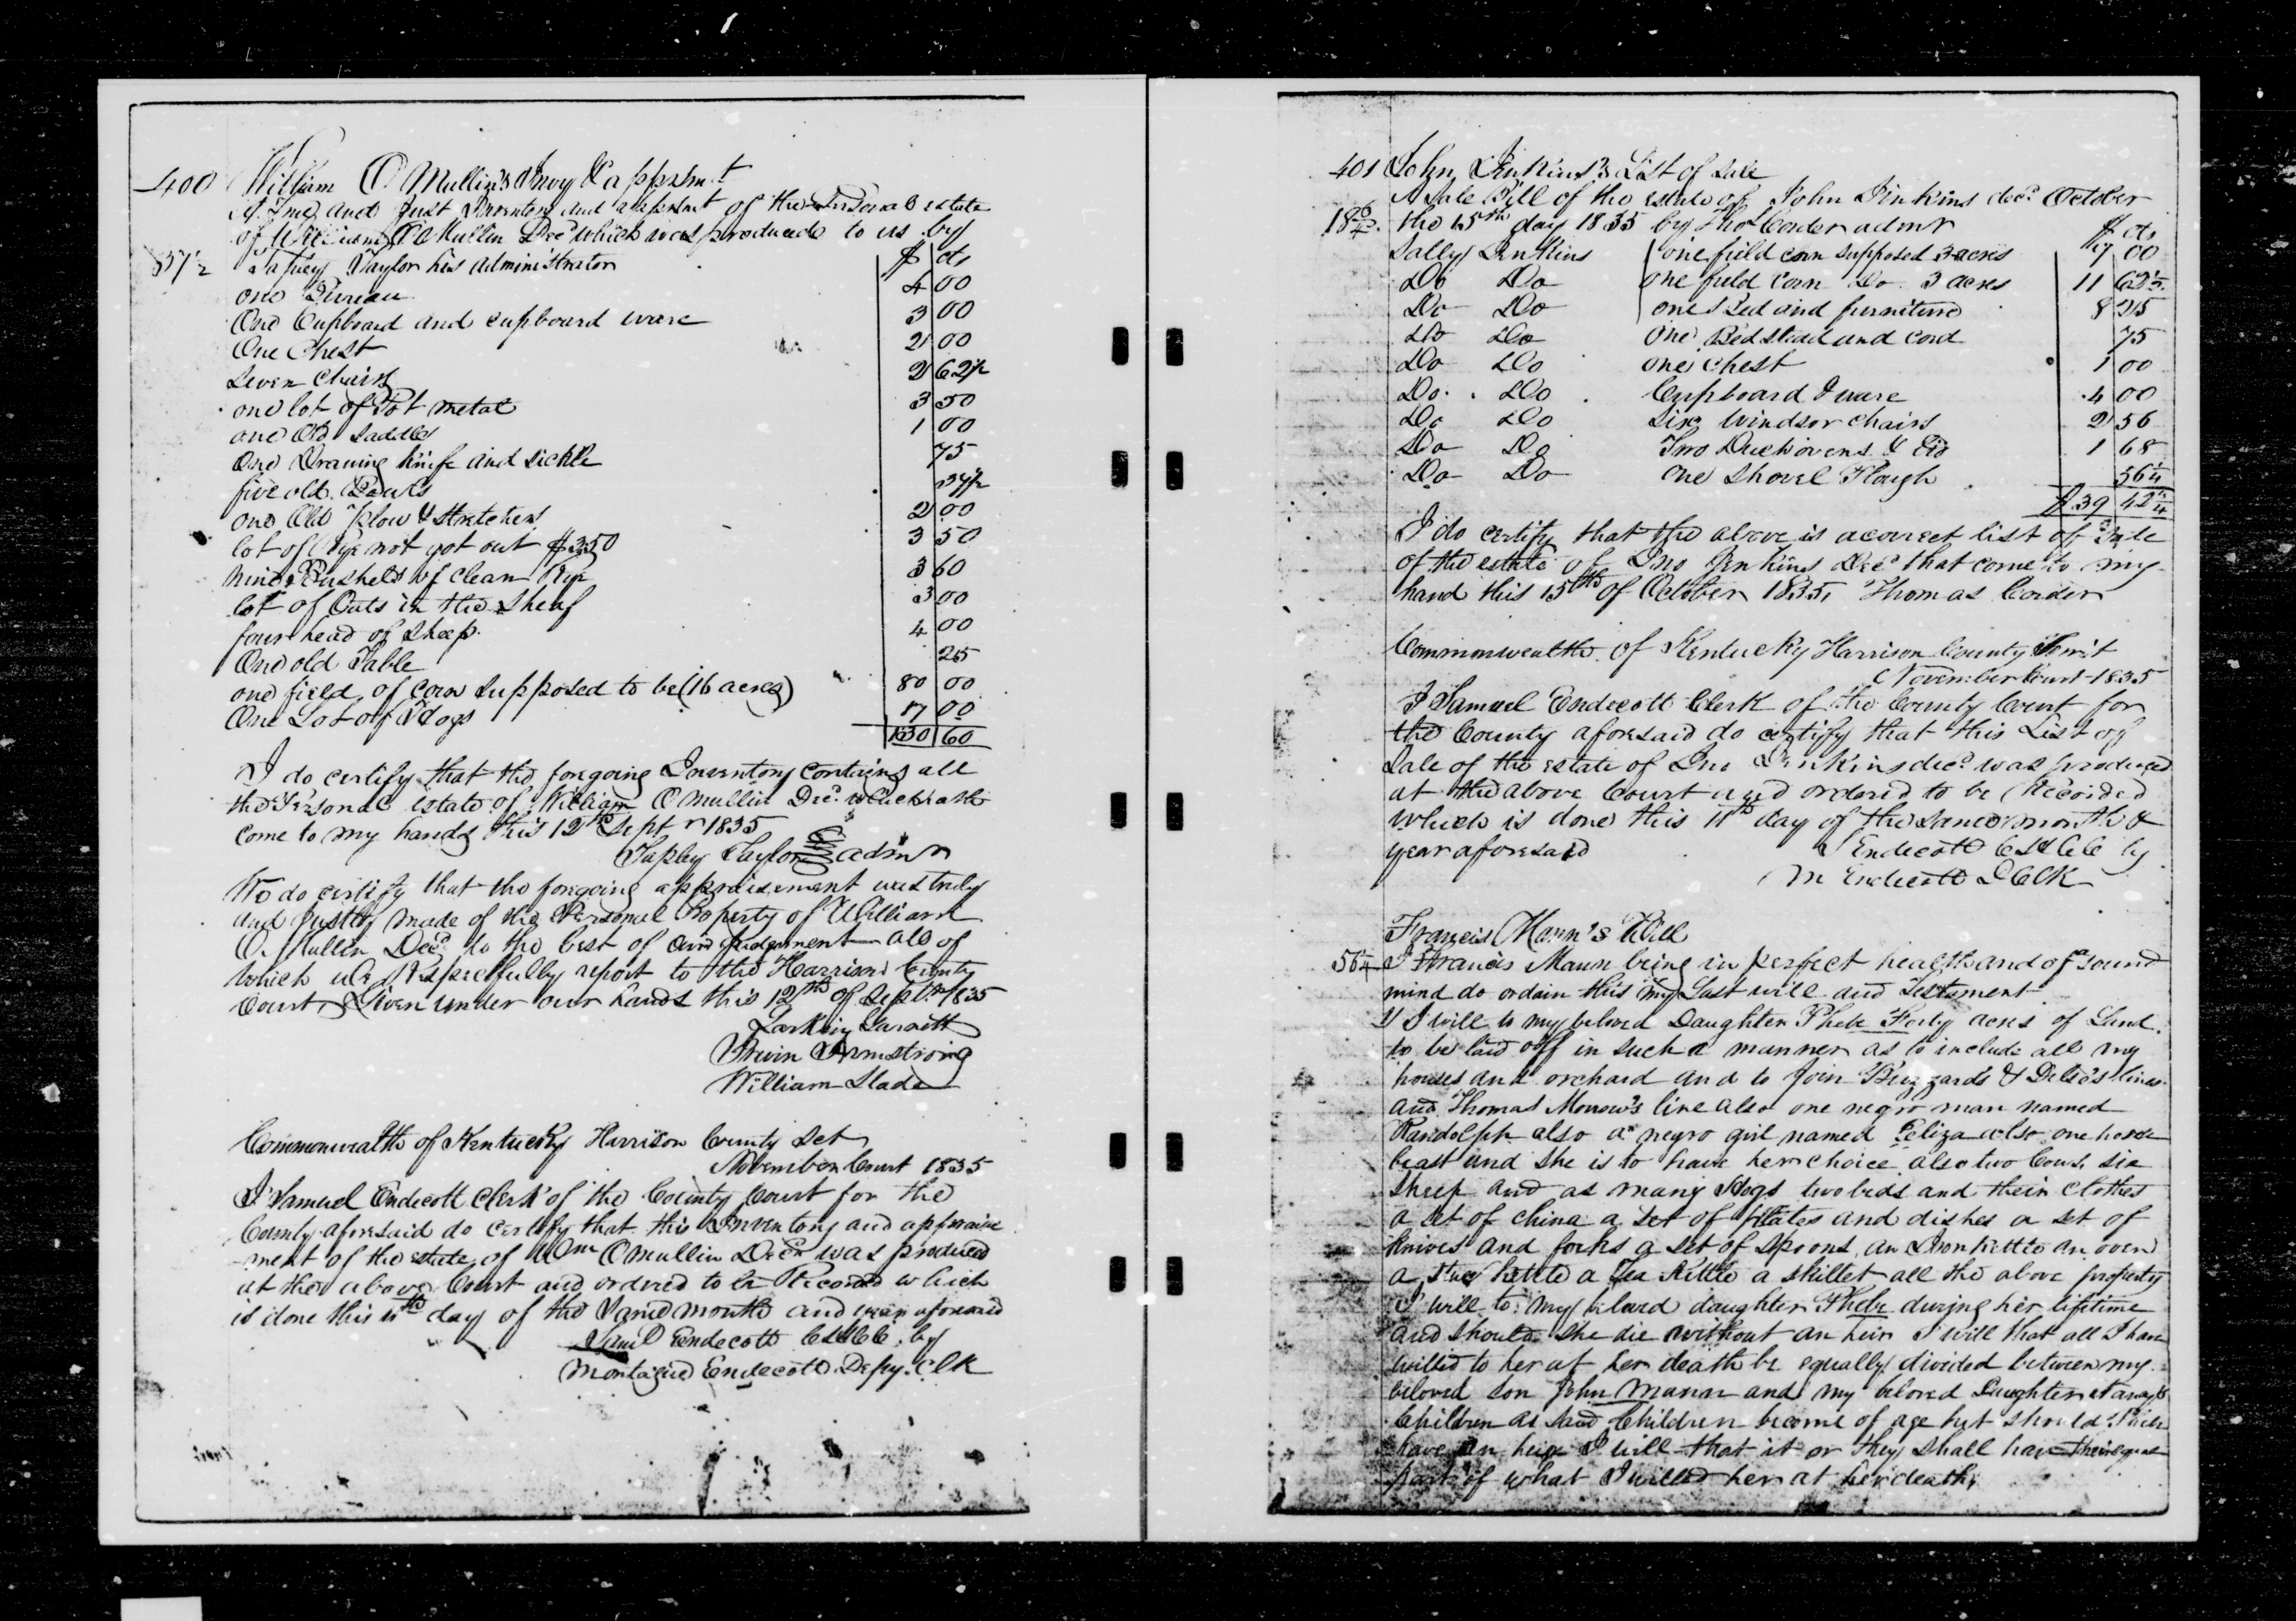 400 William O Mullin's Invy & appsmt
A True and Just Inventory and appsmt of the Personal estate
of William O Mullin Decd which was produced to us by
37½ Tapley Taylor his administrator $ cts
one Bureau 4 00
One Cupboard and cupboard ware 3 00
One Chest 2 00
Seven Chairs 2 62½
one lot of Pot metal 3 50
one Old Saddle 1 00
One Drawing Knife and sickle 75
five old 37½
one Old Plow & Stretchers 2 00
lot of Rye not got out $3.50 3 50
nine Bushels of clean Rye 3 60
lot of Oats in the sheaf 3 00
four head of sheep 4 00
One old Table 25
one field of corn supposed to be (16 acres) 80 00
One Lot of Hogs 17 00
130 60
I do certify that the foregoing Inventory contains all
the Personal estate of William O Mullin Decd which hath
come to my hands this 12th Septr 1835
Tapley Taylor admr
We do certify that the foregoing appraisement was truly
and Justly made of the Personal Property of William
O. Mullin Decd to the best of our judgement all of
which we Respectfully report to the Harrison County
Court Given under our hands this 12th of Septr 1835
Larkin Garnett
Irwin Armstrong
William Slade
Commonwealth of Kentucky Harrison County Sct
November Court 1835
I Samuel Endecott Clerk of the County Court for the
County aforesaid do certify that this Inventory and appraise
ment of the estate of Wm O mullin Decd was produced
at the above Court and ordered to be Record which
is done this 11th day of the same month and year aforesaid
Saml Endecott by
Montague Endecott Depy Clk
401 John Jenkins's List of Sale
A Sale Bill of the estate of John Jinkins decd October
18¾ the 15th day 1835 by Thos Conder admr $ cts
Sally Jenkins one field corn supposed 3 acres 9 00
Do Do one field corn Do 3 acres 11 62½
Do Do one Bed and furniture 8 25
Do Do One Bedstead and cord 75
Do Do one chest 1 00
Do Do Cupboard & ware 4 00
Do Do Six Windsor chairs 2 56
Do Do Two Duch ovens & lid 1 68
Do Do one Shovel Plough 56¼
$39 42¾
I do certify that the above is a correct list of Sale
of the estate of Jno Jenkins Decd that come to my
hand this 15th of October 1835, Thomas Conder
Commonwealth of Kentucky Harrison County
November Court 1835
I Samuel Endecott Clerk of the County Court for
the County aforesaid do certify that this List of
Sale of the estate of Jno Jenkins decd was produced
at the above Court and ordered to be Recorded
which is done this 11th day of the same month &
year aforesaid S Endecott by
M Endecott D Clk
Francis Mann's Will
56¼ I Francis Mann being in perfect health and of sound
mind do ordain this my Last will and Testament
1 I will to my beloved Daughter Phebe Forty acres of Land
to be laid off in such a manner as to include all my
houses and orchard and to Join Buzzard's & lines
and Thomas Morrow's line also one negro man named
Randolph also a negro girl named Eliza also one horse
beast and she is to have her choice also two Cows six
sheep and as many Hogs two beds and their clothes
a set of china a set of plates and dishes a set of
Knives and forks a set of spoons, an Iron kettle an oven
a kettle a Tea Kettle a skillet all the above property
I will to my beloved daughter Phebe during her lifetime
and should she die without an heir I will that all I have
willed to her at her death be equally divided between my
beloved son John Mann and my beloved Daughter
Children as said Children become of age but should Phebe
have an heir I will that it or they shall have their equal
part of what I willed her at her death